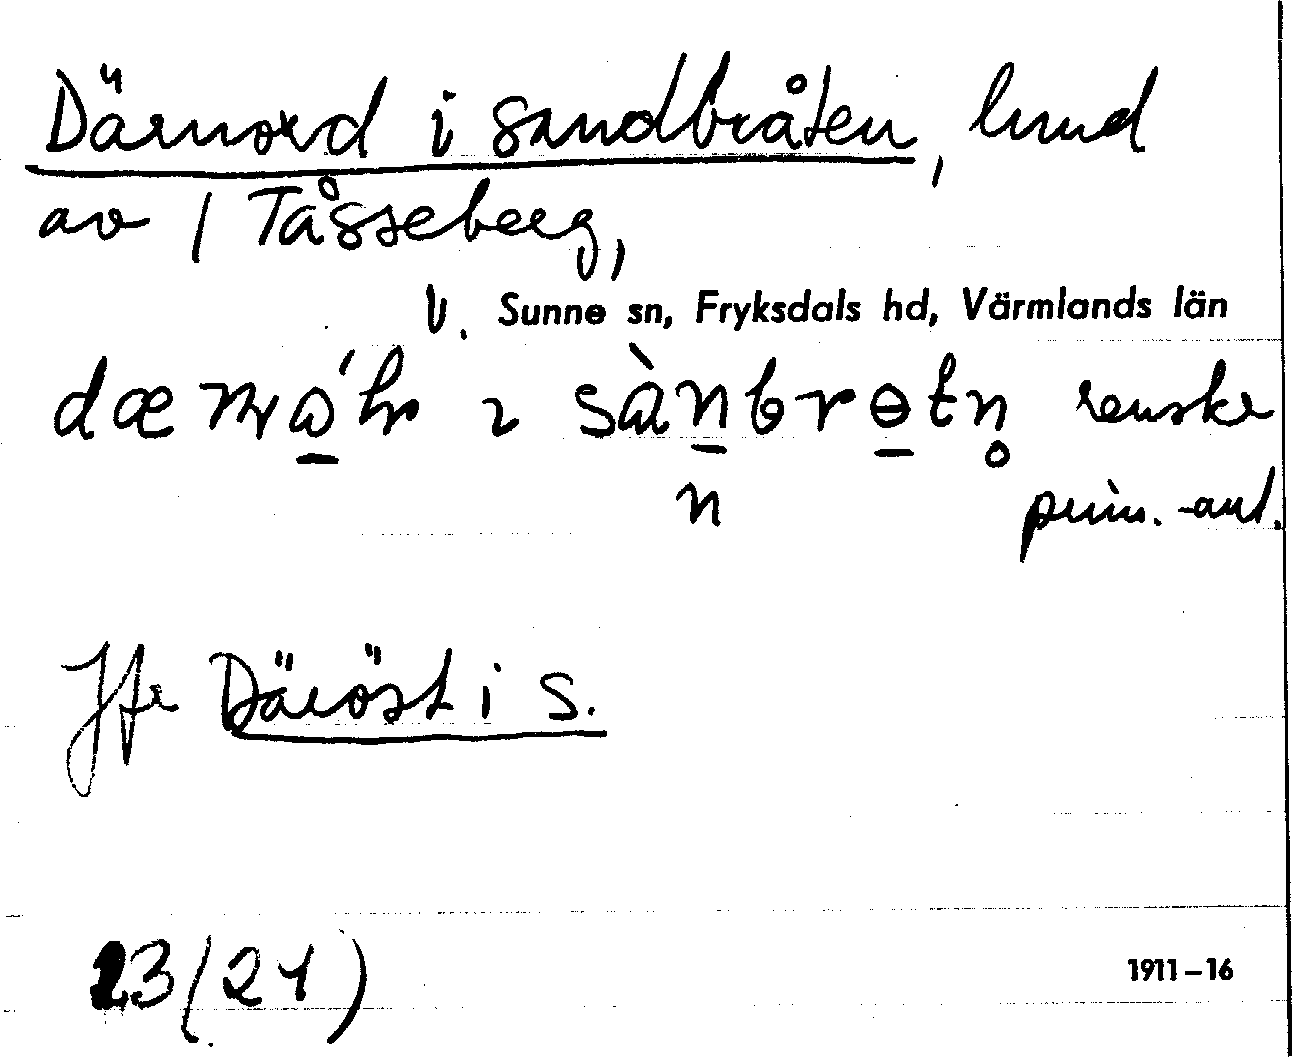 Därnord i sandbråten, lund
av / Tåsseberg,
V. Sunne sn, Fryksdals hd, Värmlands län
i sànbrɵtn̥
n
prim. -ant.
Jfr Däröst i S.
23 (24)
1911-16